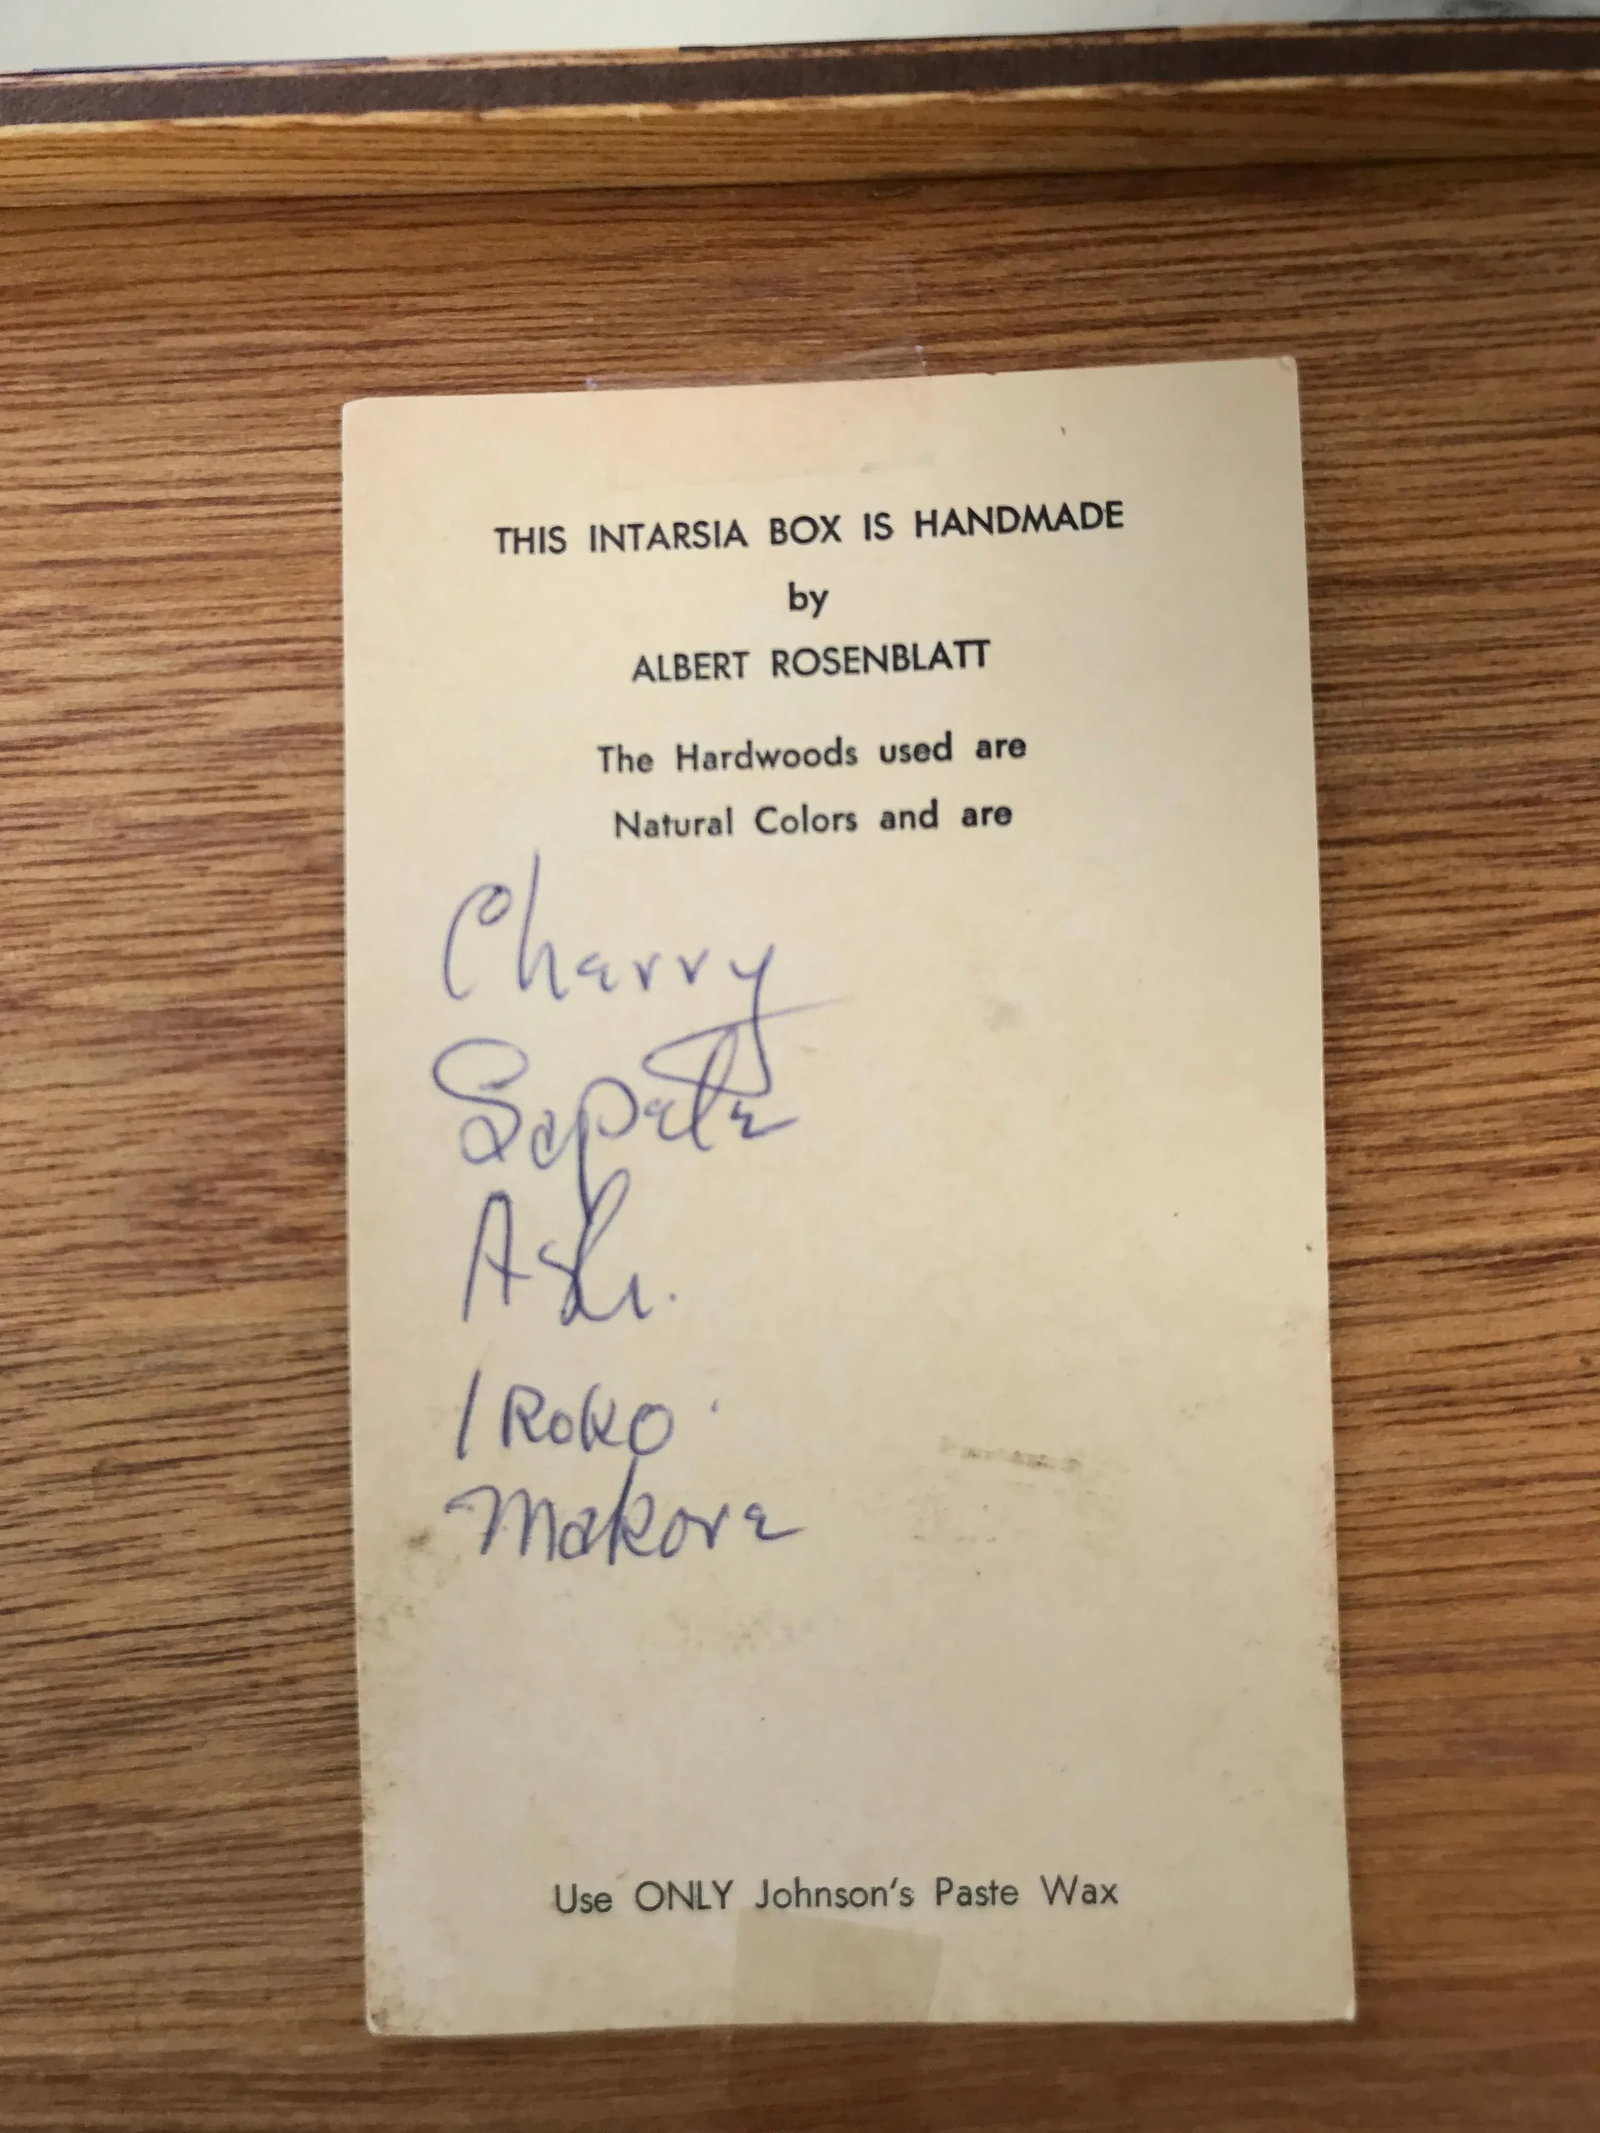 THIS INTARSIA BOX IS HANDMADE
by
ALBERT ROSENBLATT
The Hardwoods used are
Natural Colors and are
Cherry
Sapele
Ash.
IROKO
Makore
Use ONLY Johnson's Paste Wax